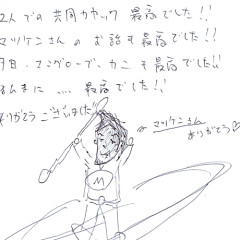 2人での共同カヤック 最高でした!!
マツケンさんのお話も最高でした!!
夕日・マングローブ・カニも最高でした!!
ほんまに....最高でした!!
ありがとうございました
マツケンさん
ありがとう♡
M